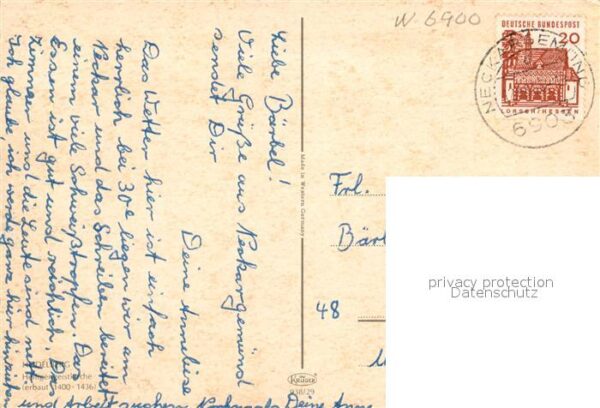 W. 6900
DEUTSCHE BUNDESPOST
20
LORSCH/HESSEN
NECKARGEMÜND
6903
Liebe Bärbel!
Viele Grüße aus Neckargemünd
sendet Dir
Deine Anneliese
Das Wetter hier ist einfach
herrlich bei 30° liegen wir am
Neckar und das Schreiben bereitet
einem viel Schweißtropfen. Das
Essen ist gut und reichlich. Das
Zimmer und die Leute sind nett.
Ich glaube, ich werde ganz hier hinziehen
und Arbeit suchen. Nochmals Deine Anne
Made in Western Germany
Frl.
Bärb
48
HEIDELBERG
Heiliggeistkirche
(erbaut 1400 - 1436)
KRÜGER
938/29
privacy protection
Datenschutz